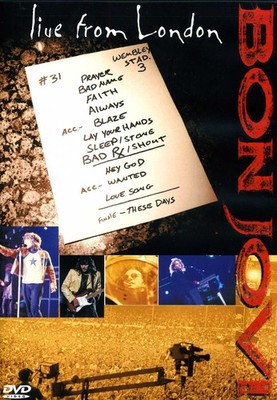 live from London
BON JOVI
#31
WEMBLEY
STAD.
3
PRAYER
BAD NAME
FAITH
ALWAYS
ACC- BLAZE
LAY YOUR HANDS
SLEEP/STONE
BAD RX/SHOUT
HEY GOD
ACC- WANTED
LOVE SONG
- THESE DAYS
DVD
VIDEO